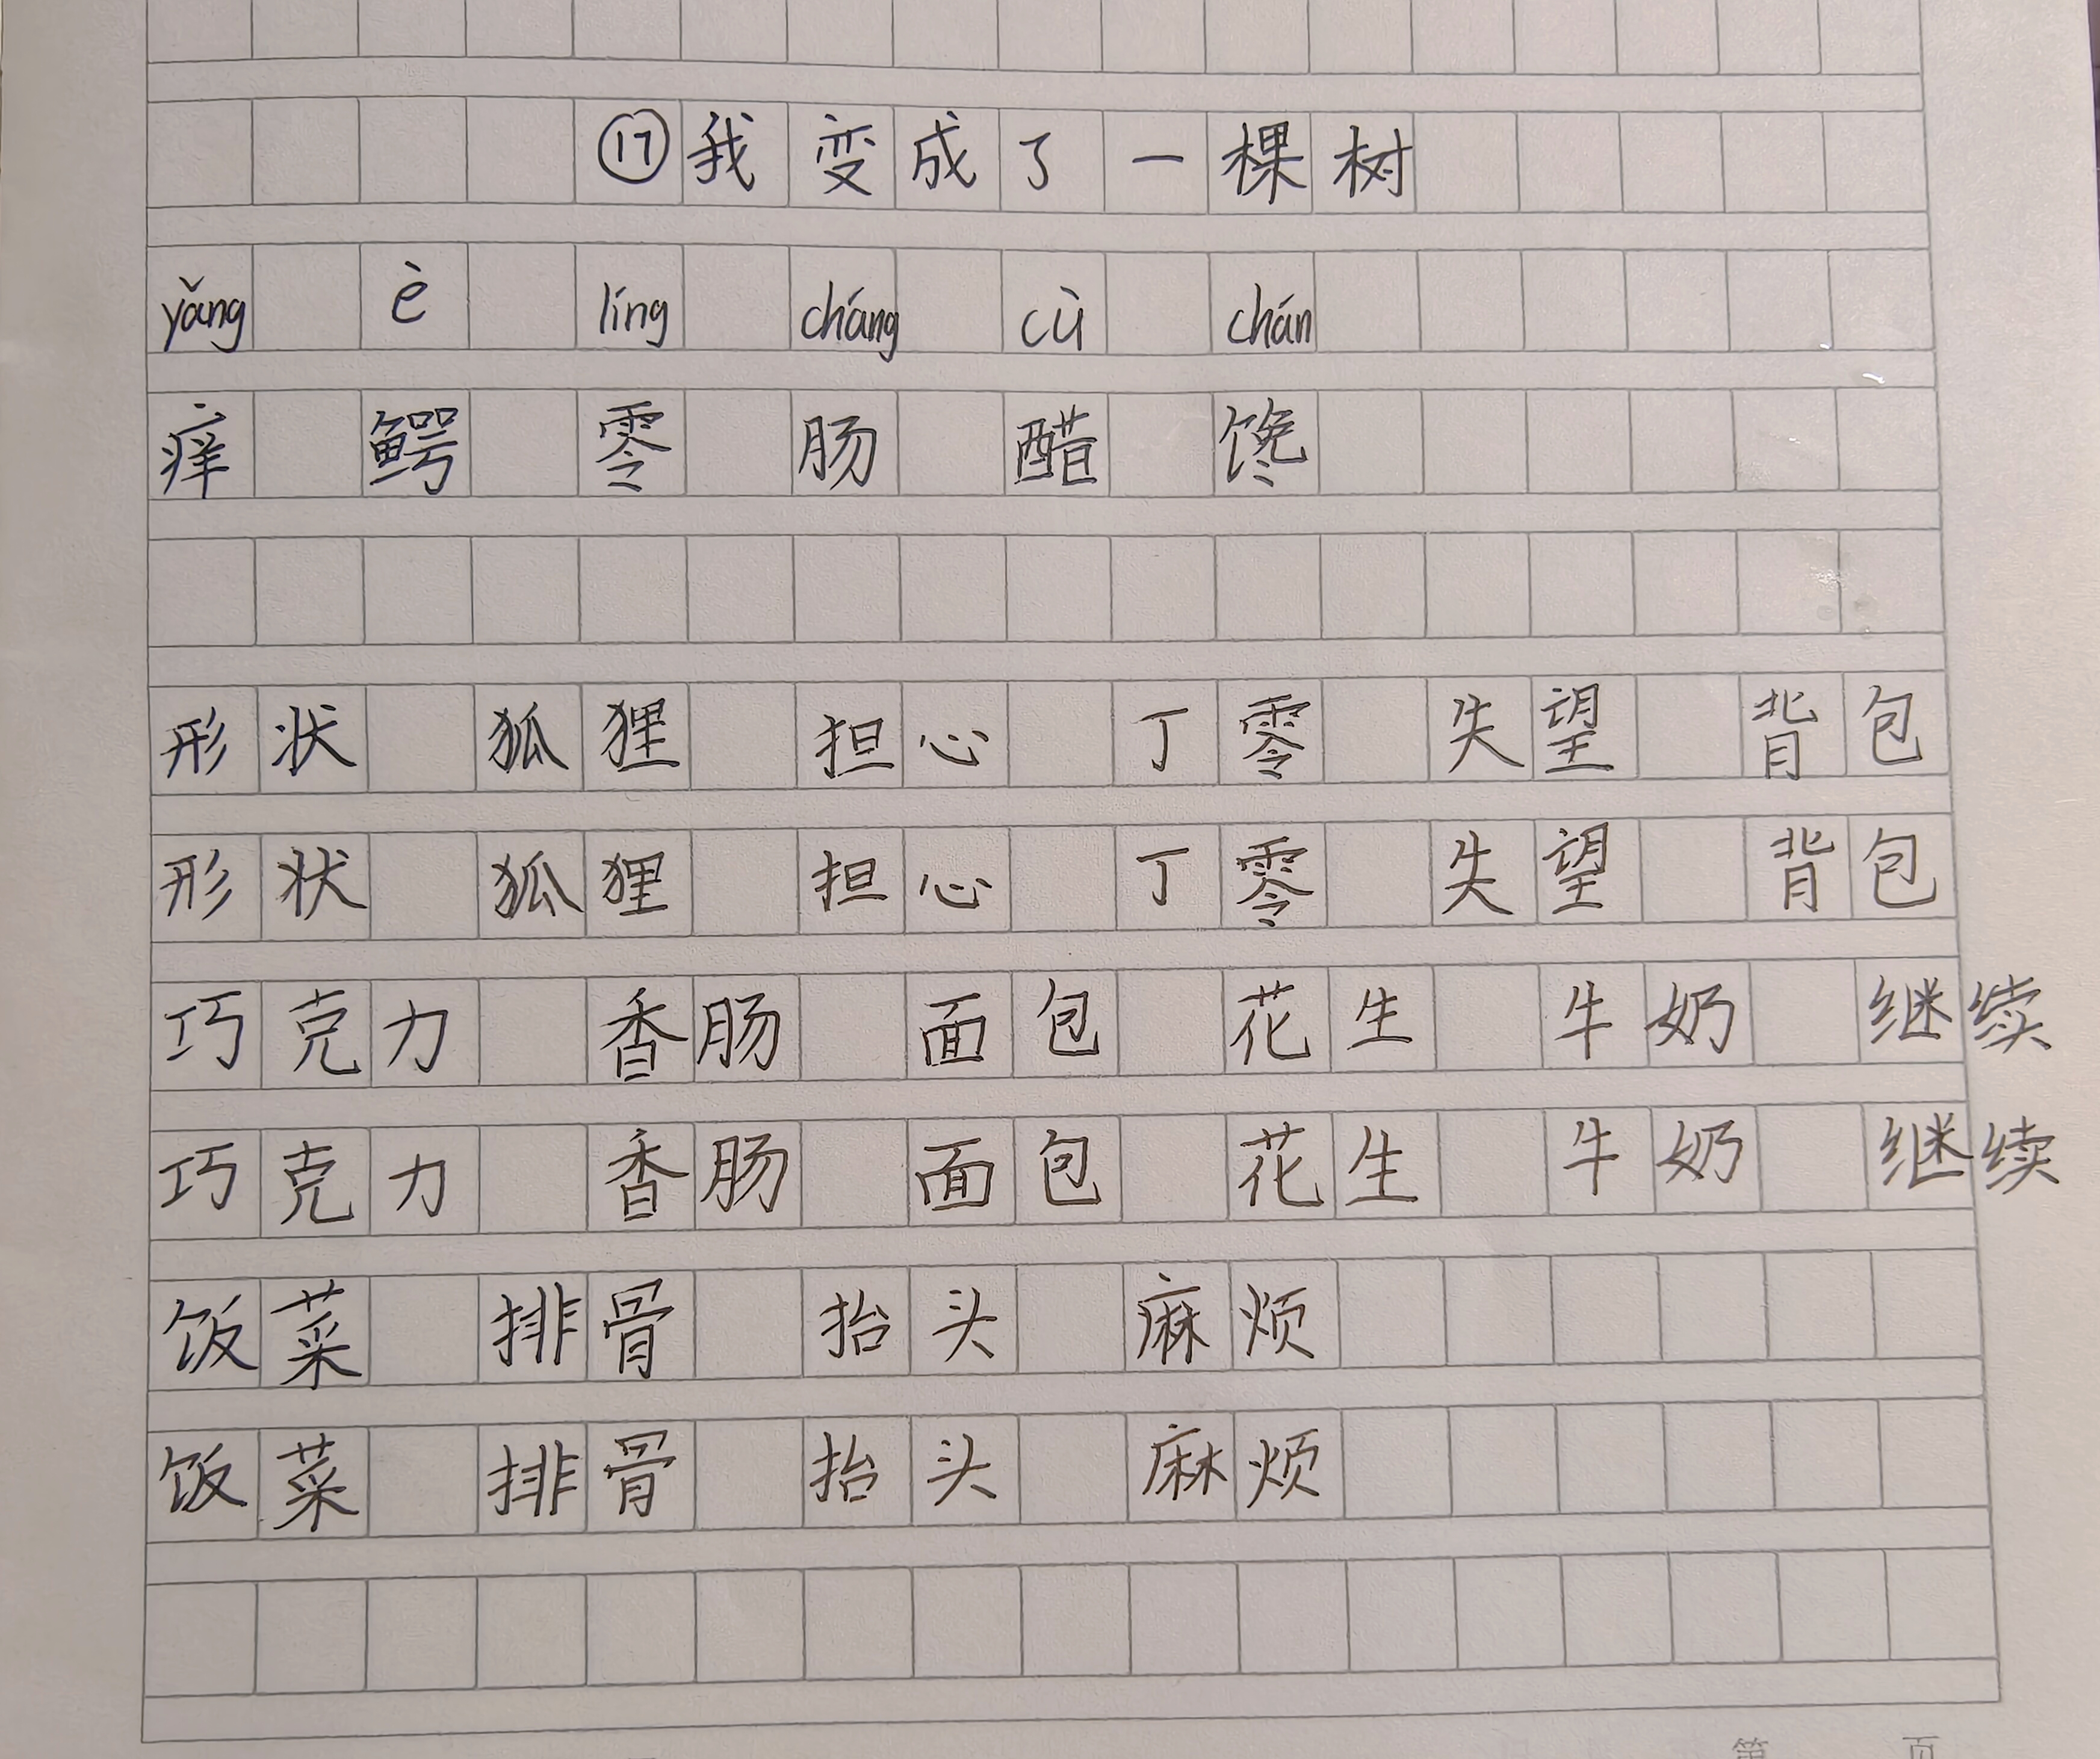 ⑰我变成了一棵树
yǎng è líng cháng cù chán
痒 鳄 零 肠 醋 馋
形状 狐狸 担心 丁零 失望 背包
形状 狐狸 担心 丁零 失望 背包
巧克力 香肠 面包 花生 牛奶 继续
巧克力 香肠 面包 花生 牛奶 继续
饭菜 排骨 抬头 麻烦
饭菜 排骨 抬头 麻烦
第 页